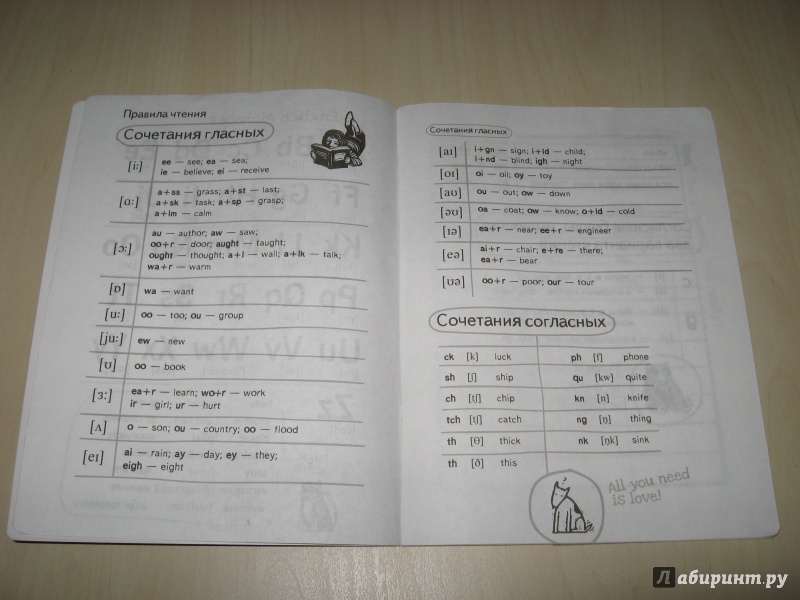 Правила чтения
Сочетания гласных
[i:] ee — see; ea — sea;
ie — believe; ei — receive
[ɑ:] a+ss — grass; a+st — last;
a+sk — task; a+sp — grasp;
a+lm — calm
[ɔ:] au — author; aw — saw;
oo+r — door; aught — taught;
ought — thought; a+l — wall; a+lk — talk;
wa+r — warm
[ɒ] wa — want
[u:] oo — too; ou — group
[ju:] ew — new
[ʊ] oo — book
[ɜ:] ea+r — learn; wo+r — work
ir — girl; ur — hurt
[ʌ] o — son; ou — country; oo — flood
[eɪ] ai — rain; ay — day; ey — they;
eigh — eight
Сочетания гласных
[aɪ] i+gn — sign; i+ld — child;
i+nd — blind; igh — night
[ɔɪ] oi — oil; oy — toy
[aʊ] ou — out; ow — down
[əʊ] oa — coat; ow — know; o+ld — cold
[ɪə] ea+r — near; ee+r — engineer
[eə] ai+r — chair; e+re — there;
ea+r — bear
[ʊə] oo+r — poor; our — tour
Сочетания согласных
ck [k] luck ph [f] phone
sh [ʃ] ship qu [kw] quite
ch [tʃ] chip kn [n] knife
tch [tʃ] catch ng [ŋ] thing
th [θ] thick nk [ŋk] sink
th [ð] this
All you need
is love!
Лабиринт.ру